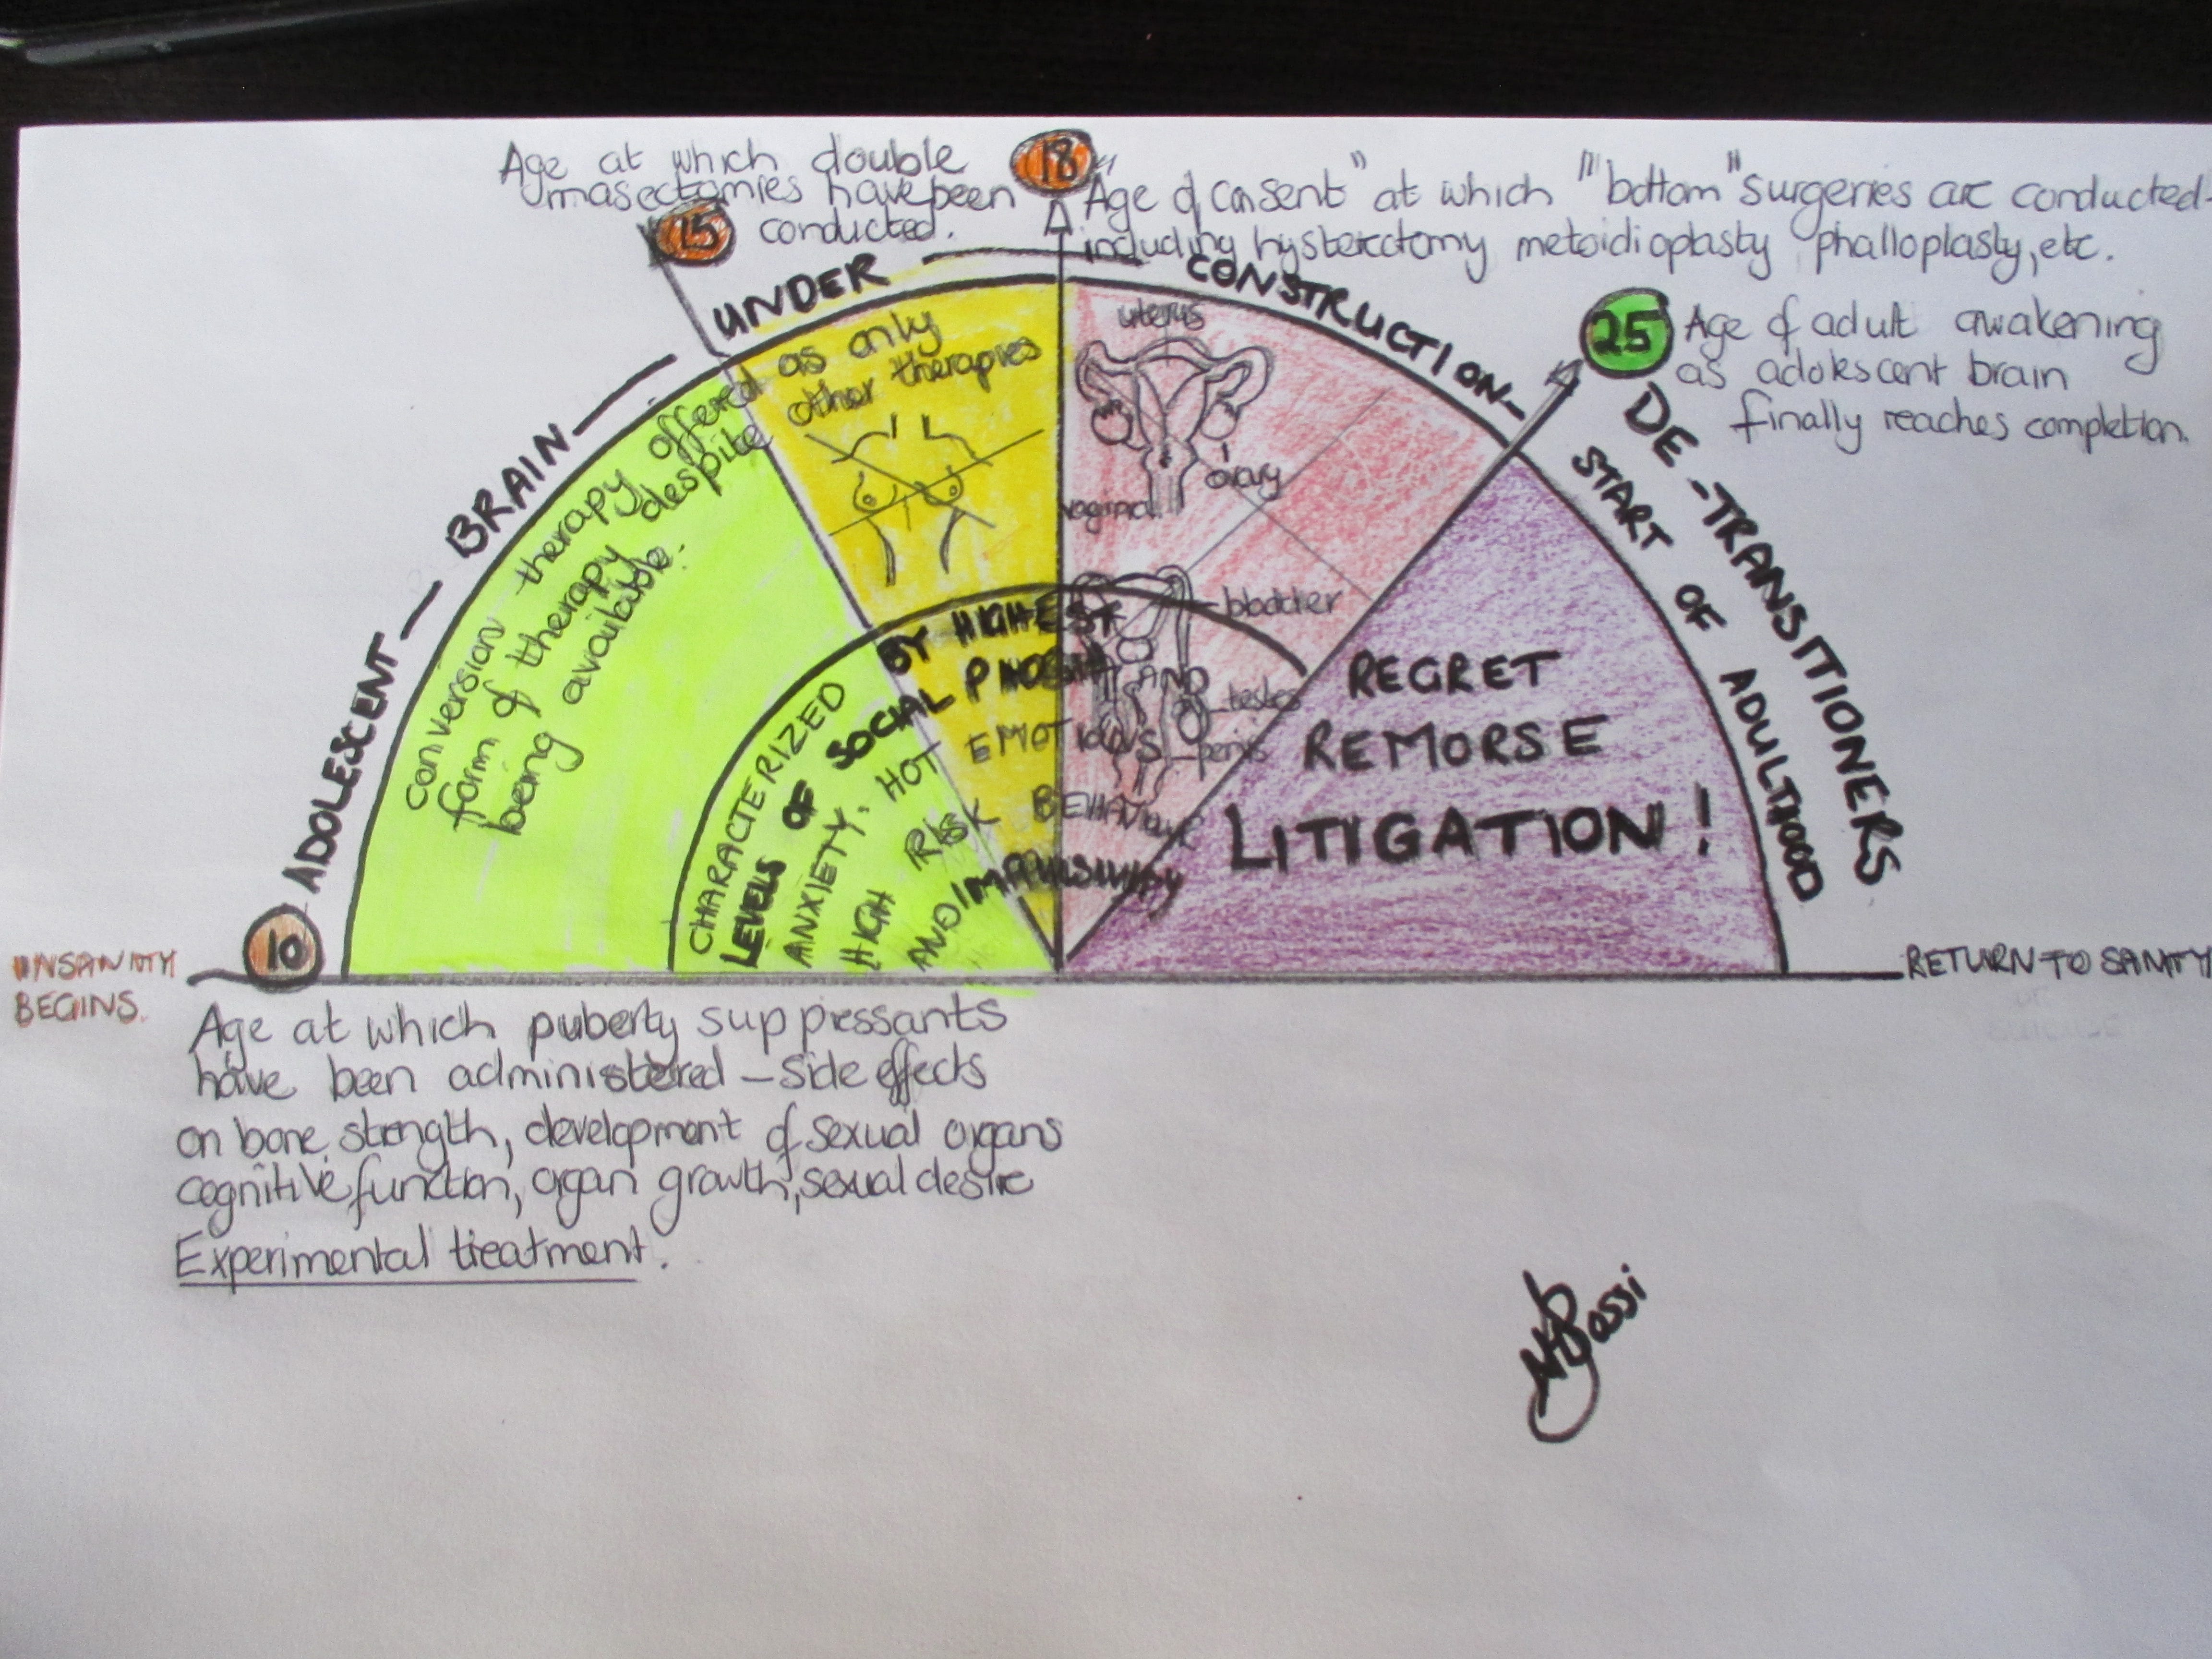 Age at which double
masectomies have been
conducted.
15
18
"Age of consent" at which "bottom" surgeries are conducted-
including hysterectomy metoidioplasty phalloplasty, etc.
25
Age of adult awakening
as adolescent brain
finally reaches completion.
ADOLESCENT — BRAIN — UNDER — CONSTRUCTION-
DE-TRANSITIONERS
START OF ADULTHOOD
conversion therapy offered as only
form of therapy despite other therapies
being available.
uterus
ovary
vaginal
bladder
testes
penis
CHARACTERIZED BY HIGHEST
LEVELS OF SOCIAL PHOBIA AND
ANXIETY. HOT EMOTIONS
HIGH RISK BEHAVIOUR
AND IMPULSIVITY
REGRET
REMORSE
LITIGATION!
10
INSANITY
BEGINS.
RETURN TO SANITY
Age at which puberty suppressants
have been administered – side effects
on bone strength, development of sexual organs
cognitive function, organ growth, sexual desire
Experimental treatment.